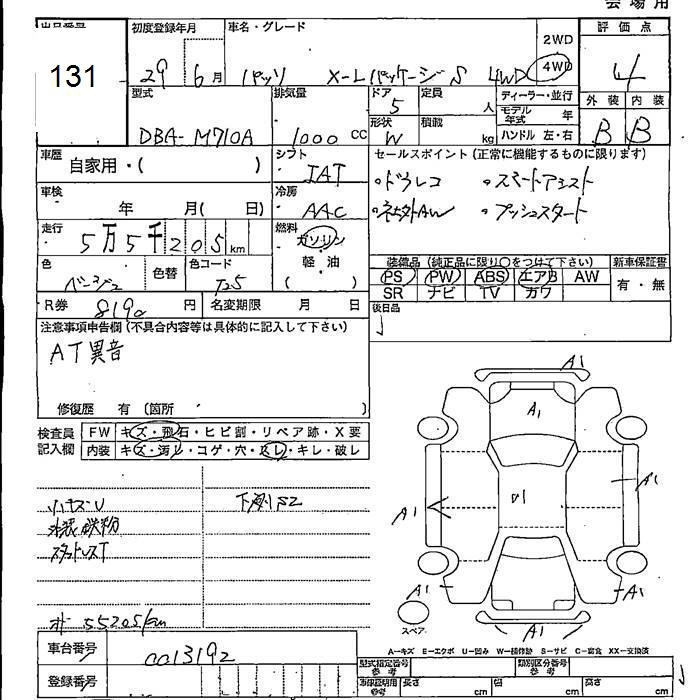 会場用
131
初度登録年月
29 6月
車名・グレード
パッソ X-Lパッケージ S 4WD
2WD
4WD
評価点
4
外装 内装
B B
型式
DBA-M710A
排気量
1000 CC
ドア
5
定員
人
形状
W
積載
kg
ディーラー・並行
モデル年式 年
ハンドル 左・右
車歴
自家用・( )
シフト
IAT
セールスポイント(正常に機能するものに限ります)
・ドラレコ ・スマートアシスト
・社外AW ・プッシュスタート
車検
年 月( 日)
冷房
AAC
走行
5万5千205km
燃料
ガソリン
軽・油
( ・ )
色
ベージュ
色替
色コード
T25
装備品(純正品に限り○をつけて下さい)
PS PW ABS エアB AW
SR ナビ TV カワ
新車保証書
有・無
R券
8190円
名変期限 月 日
後日品
注意事項申告欄(不具合内容等は具体的に記入して下さい)
AT異音
修復歴 有(箇所 )
検査員記入欄
FW キズ・飛石・ヒビ割・リペア跡・X要
内装 キズ・汚レ・コゲ・穴・スレ・キレ・破レ
小キズU 下廻りS2
外装鉄粉
スタッドレスT
オー55205km
A1
A1
A1
A1
A1
A1
A1
スペア
A1
A-キズ E-エクボ U-凹み W-補修跡 S-サビ C-腐食 XX-交換済
車台番号
0013192
登録番号
型式指定番号 参考
類別区分番号 参考
車庫証明用 参考
長さ cm
幅 cm
高さ cm